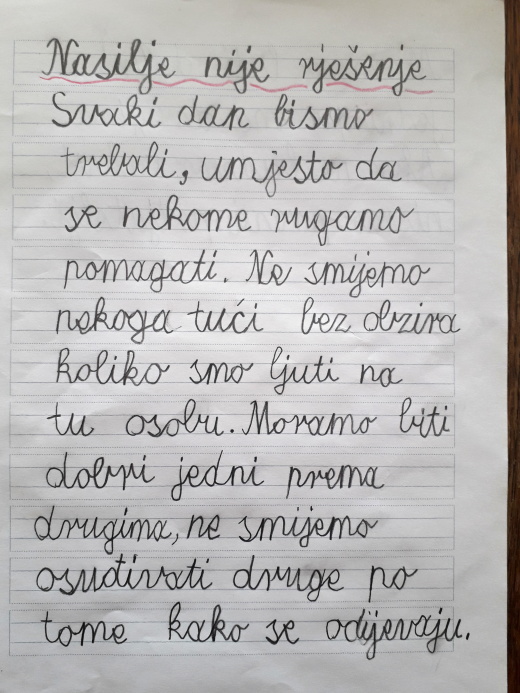 Nasilje nije rješenje
Svaki dan bismo
trebali, umjesto da
se nekome rugamo
pomagati. Ne smijemo
nekoga tući bez obzira
koliko smo ljuti na
tu osobu. Moramo biti
dobri jedni prema
drugima, ne smijemo
osuđivati druge po
tome kako se odijevaju.